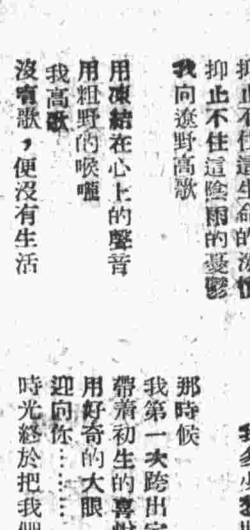 抑止不住這陰雨的憂鬱
我向遼野高歌
用凍結在心上的聲音
用粗野的喉嚨
我高歌
沒有歌，便沒有生活
那時候
我第一次跨出
帶著初生的喜
用好奇的大眼
迎向你………
時光終於把我們